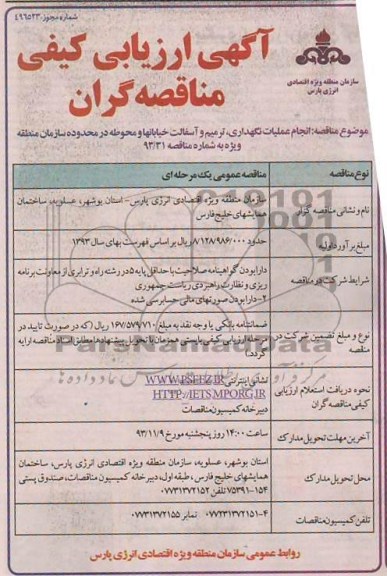 شماره مجوز: ۴۹۶۵۲۳۰
آگهی ارزیابی کیفی
مناقصه گران
سازمان منطقه ویژه اقتصادی
انرژی پارس
موضوع مناقصه: انجام عملیات نگهداری، ترمیم و آسفالت خیابانها و محوطه در محدوده سازمان منطقه
ویژه به شماره مناقصه ۹۳/۳۱
نوع مناقصه
مناقصه عمومی یک مرحله ای
نام و نشانی مناقصه گزار
سازمان منطقه ویژه اقتصادی انرژی پارس- استان بوشهر، عسلویه، ساختمان
همایشهای خلیج فارس
مبلغ برآورد اولیه
حدود ۸/۱۲۸/۹۸۶/۰۰۰ ریال بر اساس فهرست بهای سال ۱۳۹۳
شرایط شرکت در مناقصه
دارا بودن گواهینامه صلاحیت با حداقل پایه ۵ در رشته راه و ترابری از معاونت برنامه
ریزی و نظارت راهبردی ریاست جمهوری
۲- دارا بودن صورتهای مالی حسابرسی شده
نوع و مبلغ تضمین شرکت در
مناقصه
ضمانتنامه بانکی یا وجه نقد به مبلغ ۱۶۷/۵۷۹/۷۱۰ ریال (که در صورت تایید در
مرحله ارزیابی کیفی بایستی همزمان با تحویل پیشنهادها مطابق اسناد مناقصه ارایه
گردد)
نحوه دریافت استعلام ارزیابی
کیفی مناقصه گران
نشانی اینترنتی WWW.PSEEZ.IR
HTTP://IETS.MPORG.IR
دبیرخانه کمیسیون مناقصات
آخرین مهلت تحویل مدارک
ساعت ۱۴:۰۰ روز پنجشنبه مورخ ۹۳/۱۱/۹
محل تحویل مدارک
استان بوشهر، عسلویه، سازمان منطقه ویژه اقتصادی انرژی پارس، ساختمان
همایشهای خلیج فارس، طبقه اول، دبیرخانه کمیسیون مناقصات، صندوق پستی
۷۵۳۹۱-۱۵۴ تلفن ۰۷۷۳۱۳۷۲۱۵۲
تلفن کمیسیون مناقصات
۰۷۷۳۱۳۷۲۱۵۱-۴ نمابر ۰۷۷۳۱۳۷۲۱۵۵
روابط عمومی سازمان منطقه ویژه اقتصادی انرژی پارس
ParsNamadData